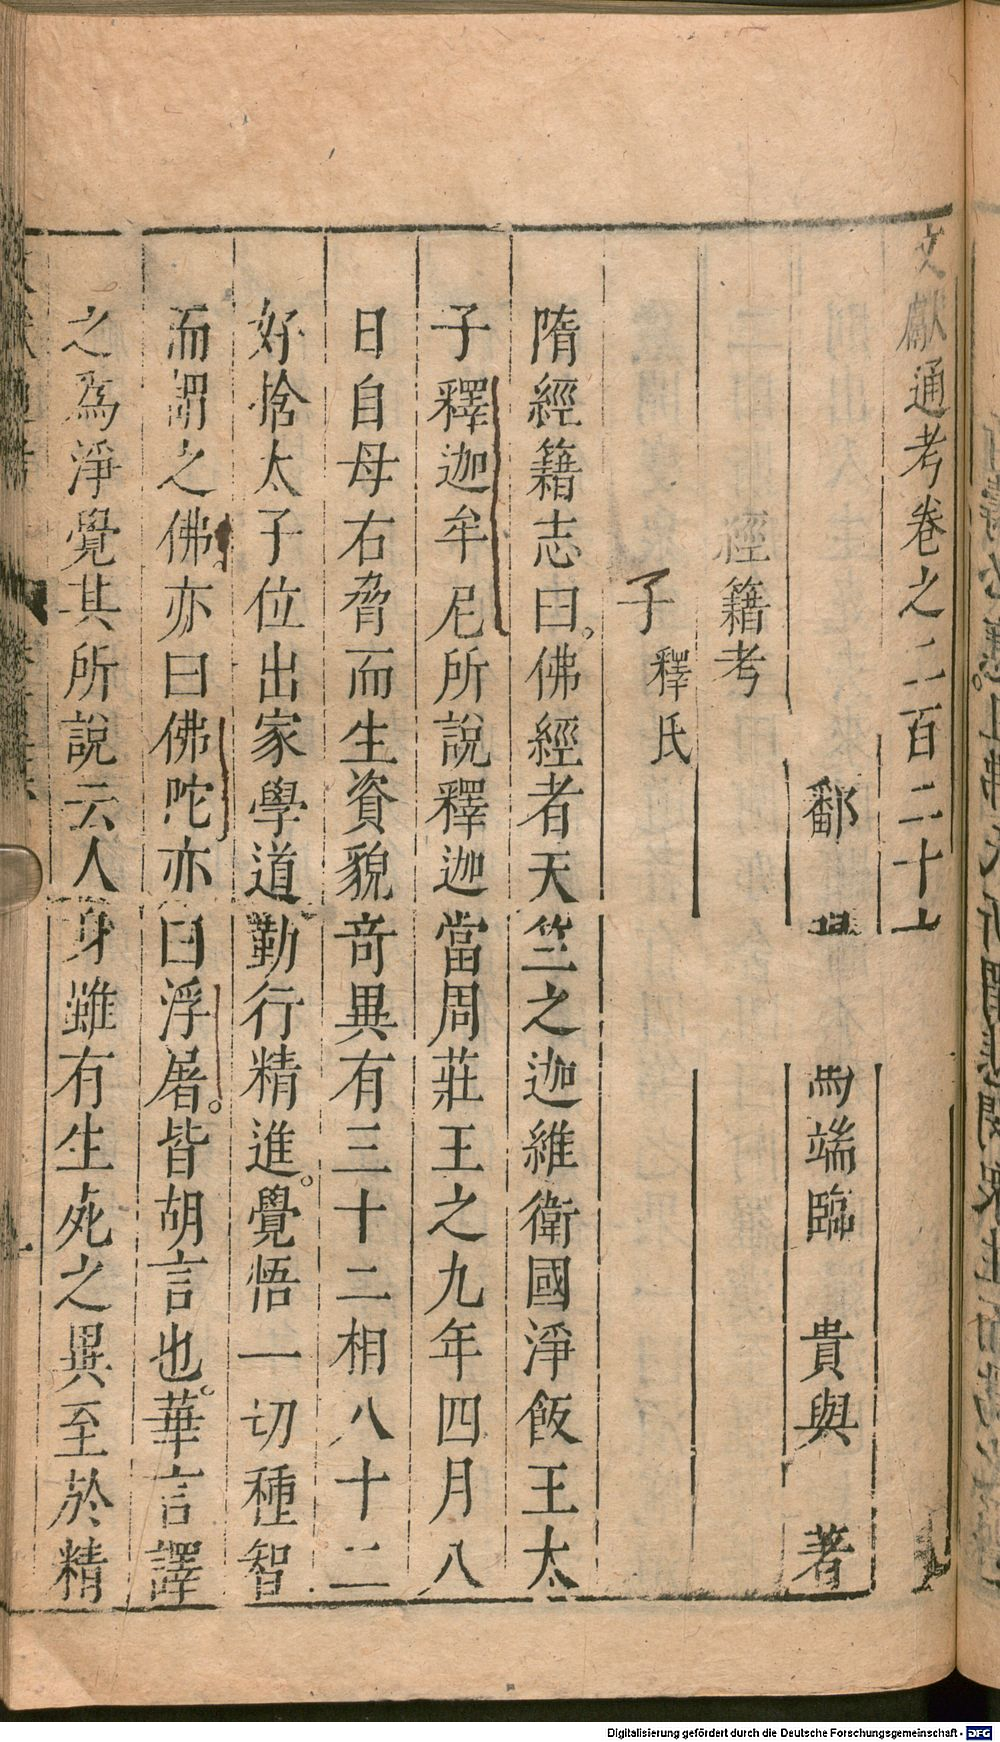 文獻通考卷之二百二十
鄱 馬端臨 貴與 著
經籍考
子 釋氏
隋經籍志曰。佛經者天竺之迦維衛國淨飯王太
子釋迦牟尼所說釋迦當周莊王之九年四月八
日自母右脅而生資貌奇異有三十二相八十二
好捨太子位出家學道勤行精進。覺悟一切種智
而謂之佛。亦曰佛陀亦曰浮屠。皆胡言也。華言譯
之為淨覺其所說云人身雖有生死之異至於精
Digitalisierung gefördert durch die Deutsche Forschungsgemeinschaft - DFG